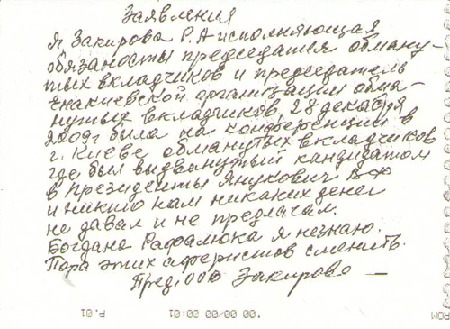 Заявления
Я Закирова Р.А исполняющая
обязаность председателя обману-
тых вкладчиков и председатель
енакиевской организации обма-
нутых вкладчиков, 28 декабря
2009г была на конференции в
г. Киеве обманутых вкладчиков
где был выдвинутый кандидатом
в Президенты Янукович В.Ф
и никто нам никаких денег
не давал и не предлагал.
Богдана не знаю.
Пора этих аферистов сменить.
Закирова
P.01 00:02 00/00 00.
ROM